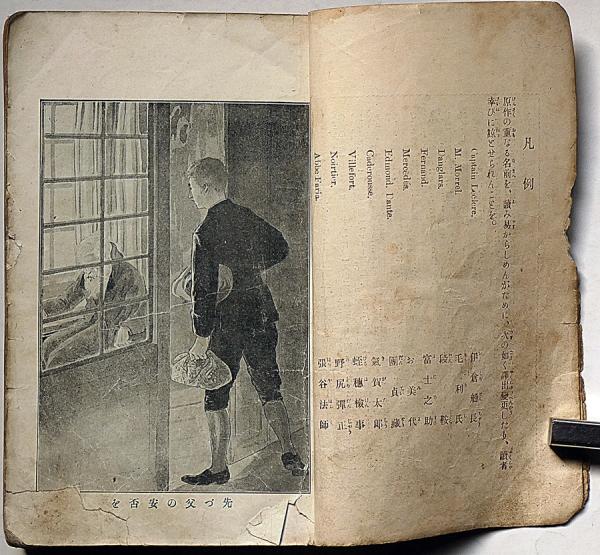 凡例
原作の重なる名前を、讀み易からしめんがために、次の如く譯出變更したり、讀者
幸びに諒とせられんことを。
Captain Leclere. 伊倉船長
M. Morrel. 毛利氏
Danglars. 段鞍
Fernand. 富士之助
Mercédès. お美代
Edmond, Dante. 團貞藏
Caderousse. 氣賀太郎
Villefort. 蛭穗檢事
Nortier. 野尻彈正
Abbe Faria. 張谷法師
先づ父の安否を